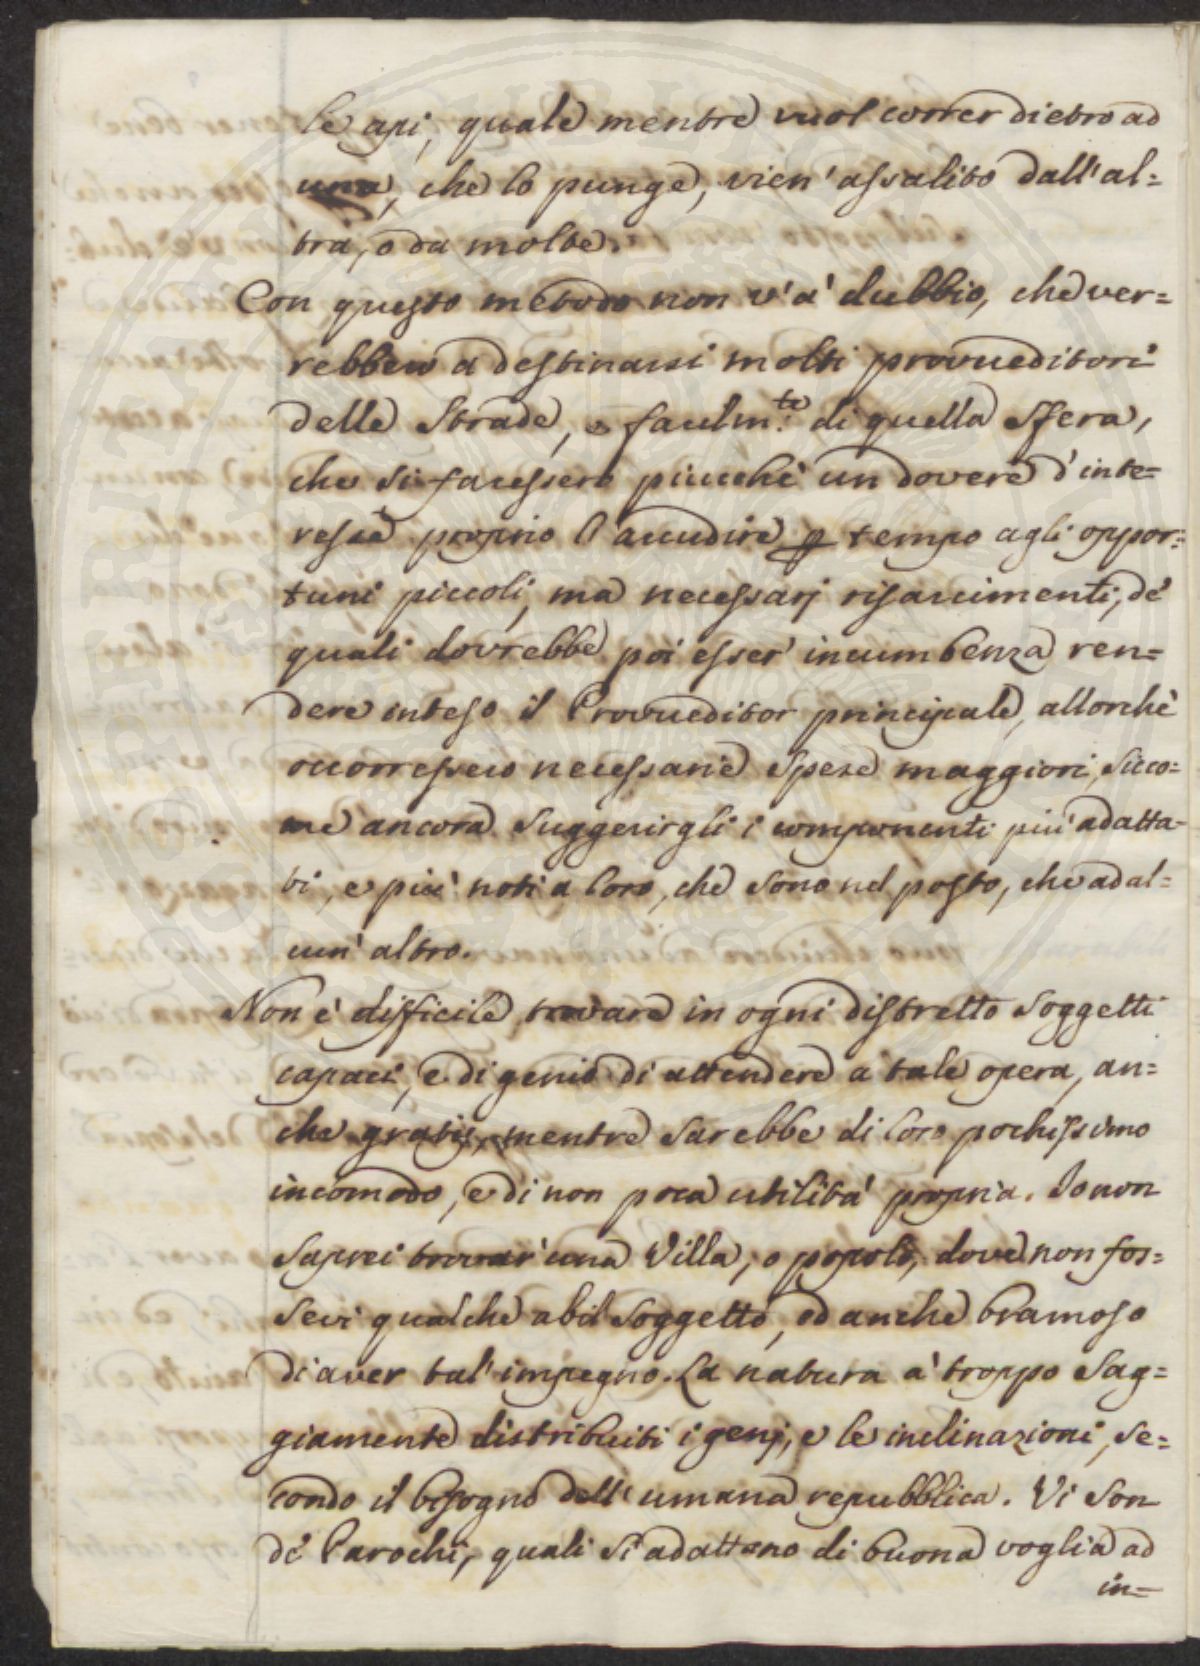 le api, quale mentre vuol correr dietro ad
una, che lo punge, vien' assalito dall' al=
tra, o da molte.
Con questo metodo non v'à dubbio, che ver=
rebbero a destinarsi molti provveditori
delle Strade, e facilm.te di quella Sfera,
che si facessero piucchè un dovere d'inte=
resse proprio l'accudire p tempo agli oppor=
tuni piccoli, ma necessarj risarcimenti, de'
quali dovrebbe poi esser' incumbenza ren=
dere inteso il Provveditor principale, allorchè
occorressero necessarie Spese maggiori, sicco=
me ancora suggerirgli i componenti più adatta=
ti, e più noti a loro, che sono nel posto, che ad al=
cun' altro.
Non è difficile trovare in ogni distretto Soggetti
capaci, e di genio di attendere a tale opera, an=
che gratis, mentre sarebbe di loro pochissimo
incomodo, e di non poca utilità propria. Io non
saprei trovar' una Villa, o popolo, dove non fos=
sevi qualche abil Soggetto, ed anche bramoso
di aver tal' impegno. La natura à troppo sag=
giamente distribuiti i genj, e le inclinazioni, se=
condo il bisogno dell' umana repubblica. Vi son
de' Parochi, quali si adattano di buona voglia ad
in=
COPERITVR
PVBLICA